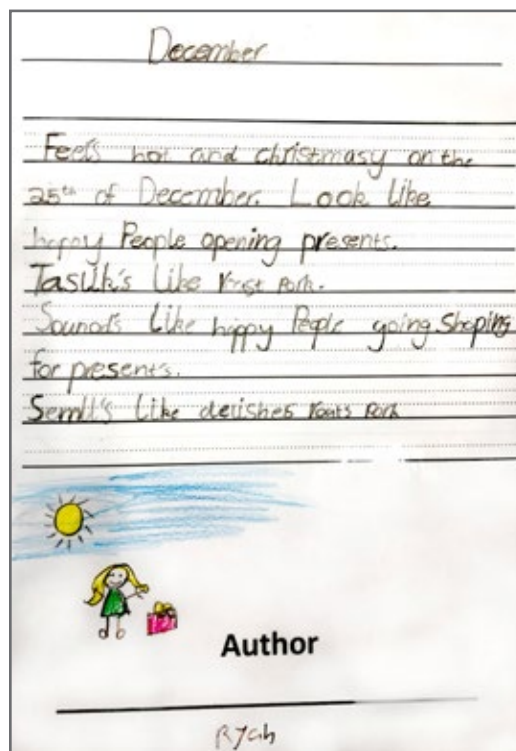 December
Feel's hot and christmasy on the
25th of December. Look like
happy People opening presents.
Tasuk's like roast Pork.
Sounod's Like happy People going shoping
for presents.
Semll's like delishes roats Pork
Author
Ryah